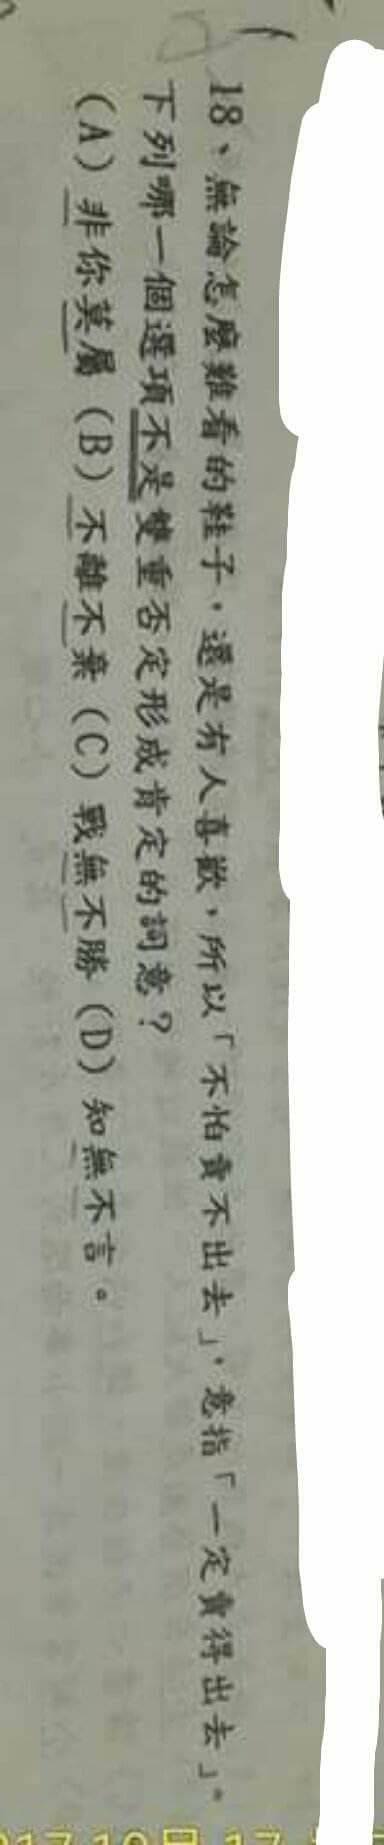 18、無論怎麼難看的鞋子，還是有人喜歡，所以「不怕賣不出去」，意指「一定賣得出去」。
下列哪一個選項不是雙重否定形成肯定的詞意？
(A) 非你莫屬 (B) 不離不棄 (C) 戰無不勝 (D) 知無不言。